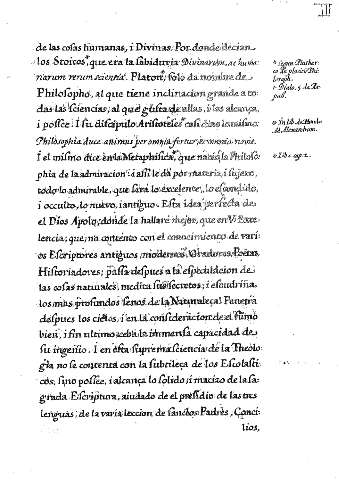 III
de las cosas humanas, i Divinas. Por donde decian
los Stoicos, que era la sabiduria Divinarum, ac huma
narum rerum scientia. Platon, solo da nombre de
Philosopho, al que tiene inclinacion grande a to
das las sciencias; al que gusta de ellas, i las alcança,
i possee. I su discipulo Aristoteles casi dice lo mismo:
Philosophia duce animus per omnia fertur,
I el mismo dice en la Metaphisica, que nacio la Philoso
phia de la admiracion: i assi le dà por materia, i sujeto,
todo lo admirable, que serà lo excelente, lo escondido,
i occulto, lo nuevo, i antiguo. Esta idea perfecta de
el Dios Apolo, donde la hallarè mejor, que en V. Exce
lencia; que, no contento con el conocimiento de vari
os Escriptores antiguos, modernos, Oradores, Poetas,
Historiadores; passa despues a la especulacion de
las cosas naturales, medita sus secretos; i escudriña
los mas profundos senos de la Naturaleça. Penetra
despues los cielos, i en la consideracion de el sumo
bien, i fin ultimo ceba la immensa capacidad de
su ingenio. I en esta suprema sciencia de la Theolo
gia no se contenta con la subtileça de los Escolasti
cos; sino possee, i alcança lo solido, i macizo de la sa
grada Escriptura, aiudado de el presidio de las tres
lenguas; de la varia leccion de sanctos Padres, Conci
lios,
de placitis Phi
Plato, 5. de Re
pub.
lib. de Mundo
ad Alexandrum.
Lib. 1. cap. 2.